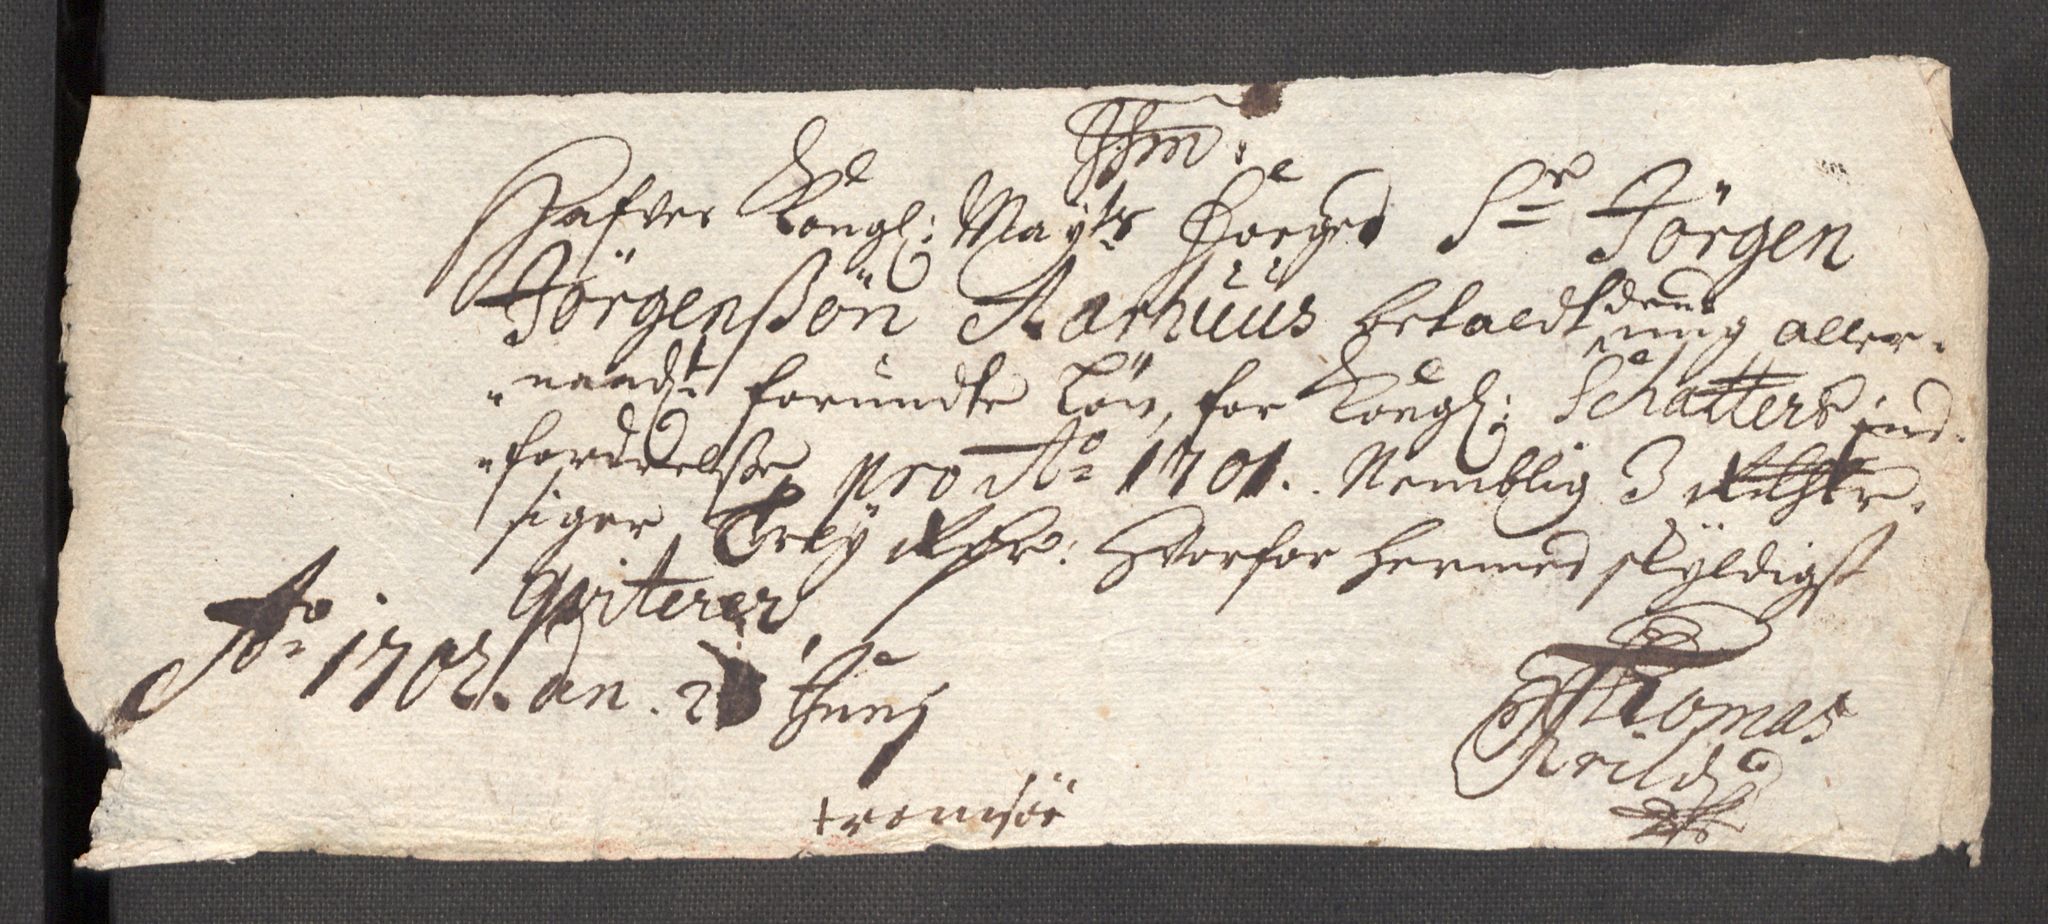 Hafver Kongl: Mayts Foeged Sr Jörgen
Jörgenßön Aarhuus betaldt den mig aller-
naadt forundte Lön, for Kongl: Schatters ind-
fordrelße, pro Ao 1701. Nemblig 3 Rthlr.
siger Trey Rdr: Hvorfor hermed skyldigst
qviterer,
Ao 1702. den. 2 Junj
Thomas
Arild
tromsöe